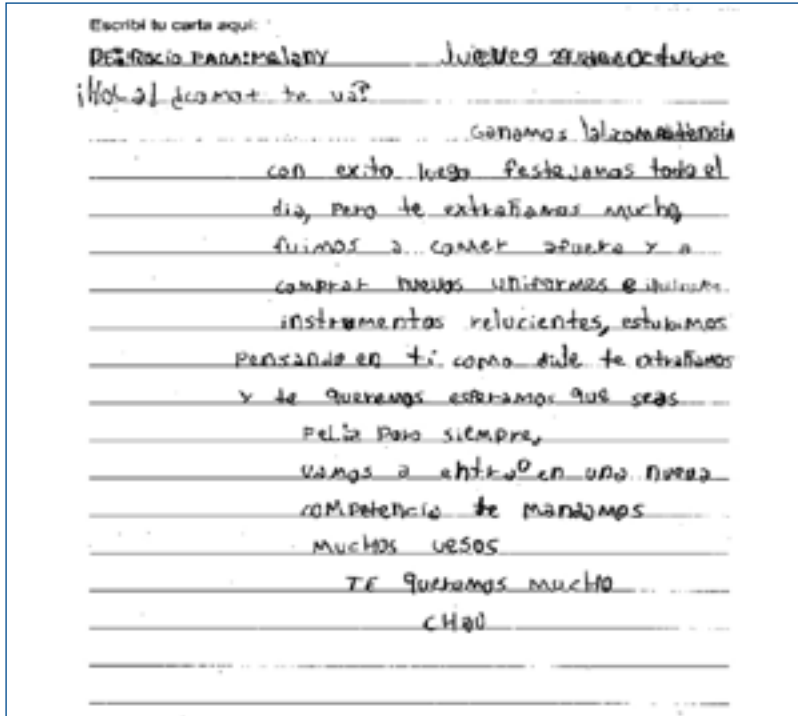 Escribí tu carta aquí:
DE: Rocío PARA: Melany Jueves 29 de Octubre
¡Hola! ¿como te va?
Ganamos la competencia
con exito luego festejamos todo el
dia, pero te extrañamos mucho,
fuimos a comer afuera y a
comprar nuevos uniformes e
instrumentos relucientes, estubimos
Pensando en ti como dije te extrañamos
y te queremos esperamos que seas
Feliz Para siempre,
vamos a entrar en una nueva
comPetencia te mandamos
MucHos vesos
TE queremos mucHo
CHaU